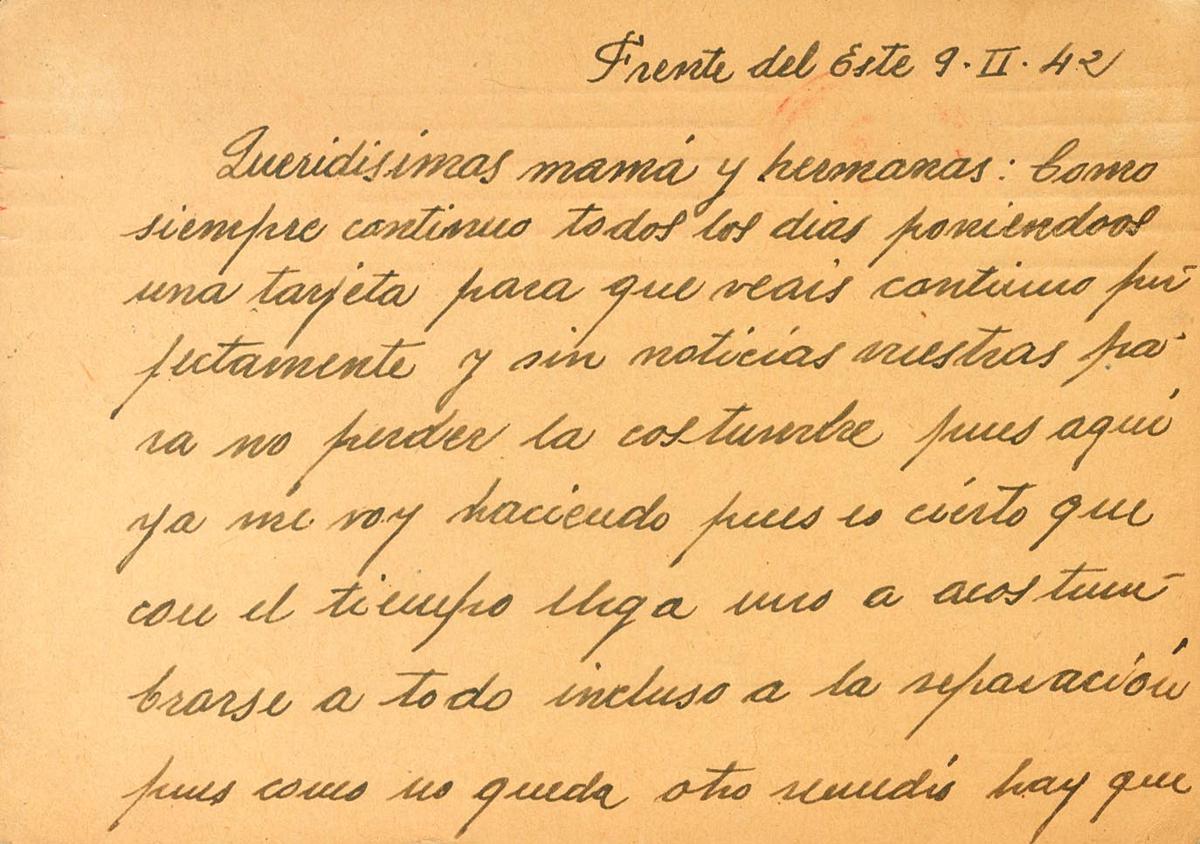 Frente del Este 9·II·42
Queridisimas mamá y hermanas: Como
siempre continuo todos los dias poniendoos
una tarjeta para que veais continuo per-
fectamente y sin noticias vuestras pa-
ra no perder la costumbre pues aquí
ya me voy haciendo pues es cierto que
con el tiempo llega uno a acostum-
brarse a todo incluso a la separación
pues como no queda otro remedio hay que